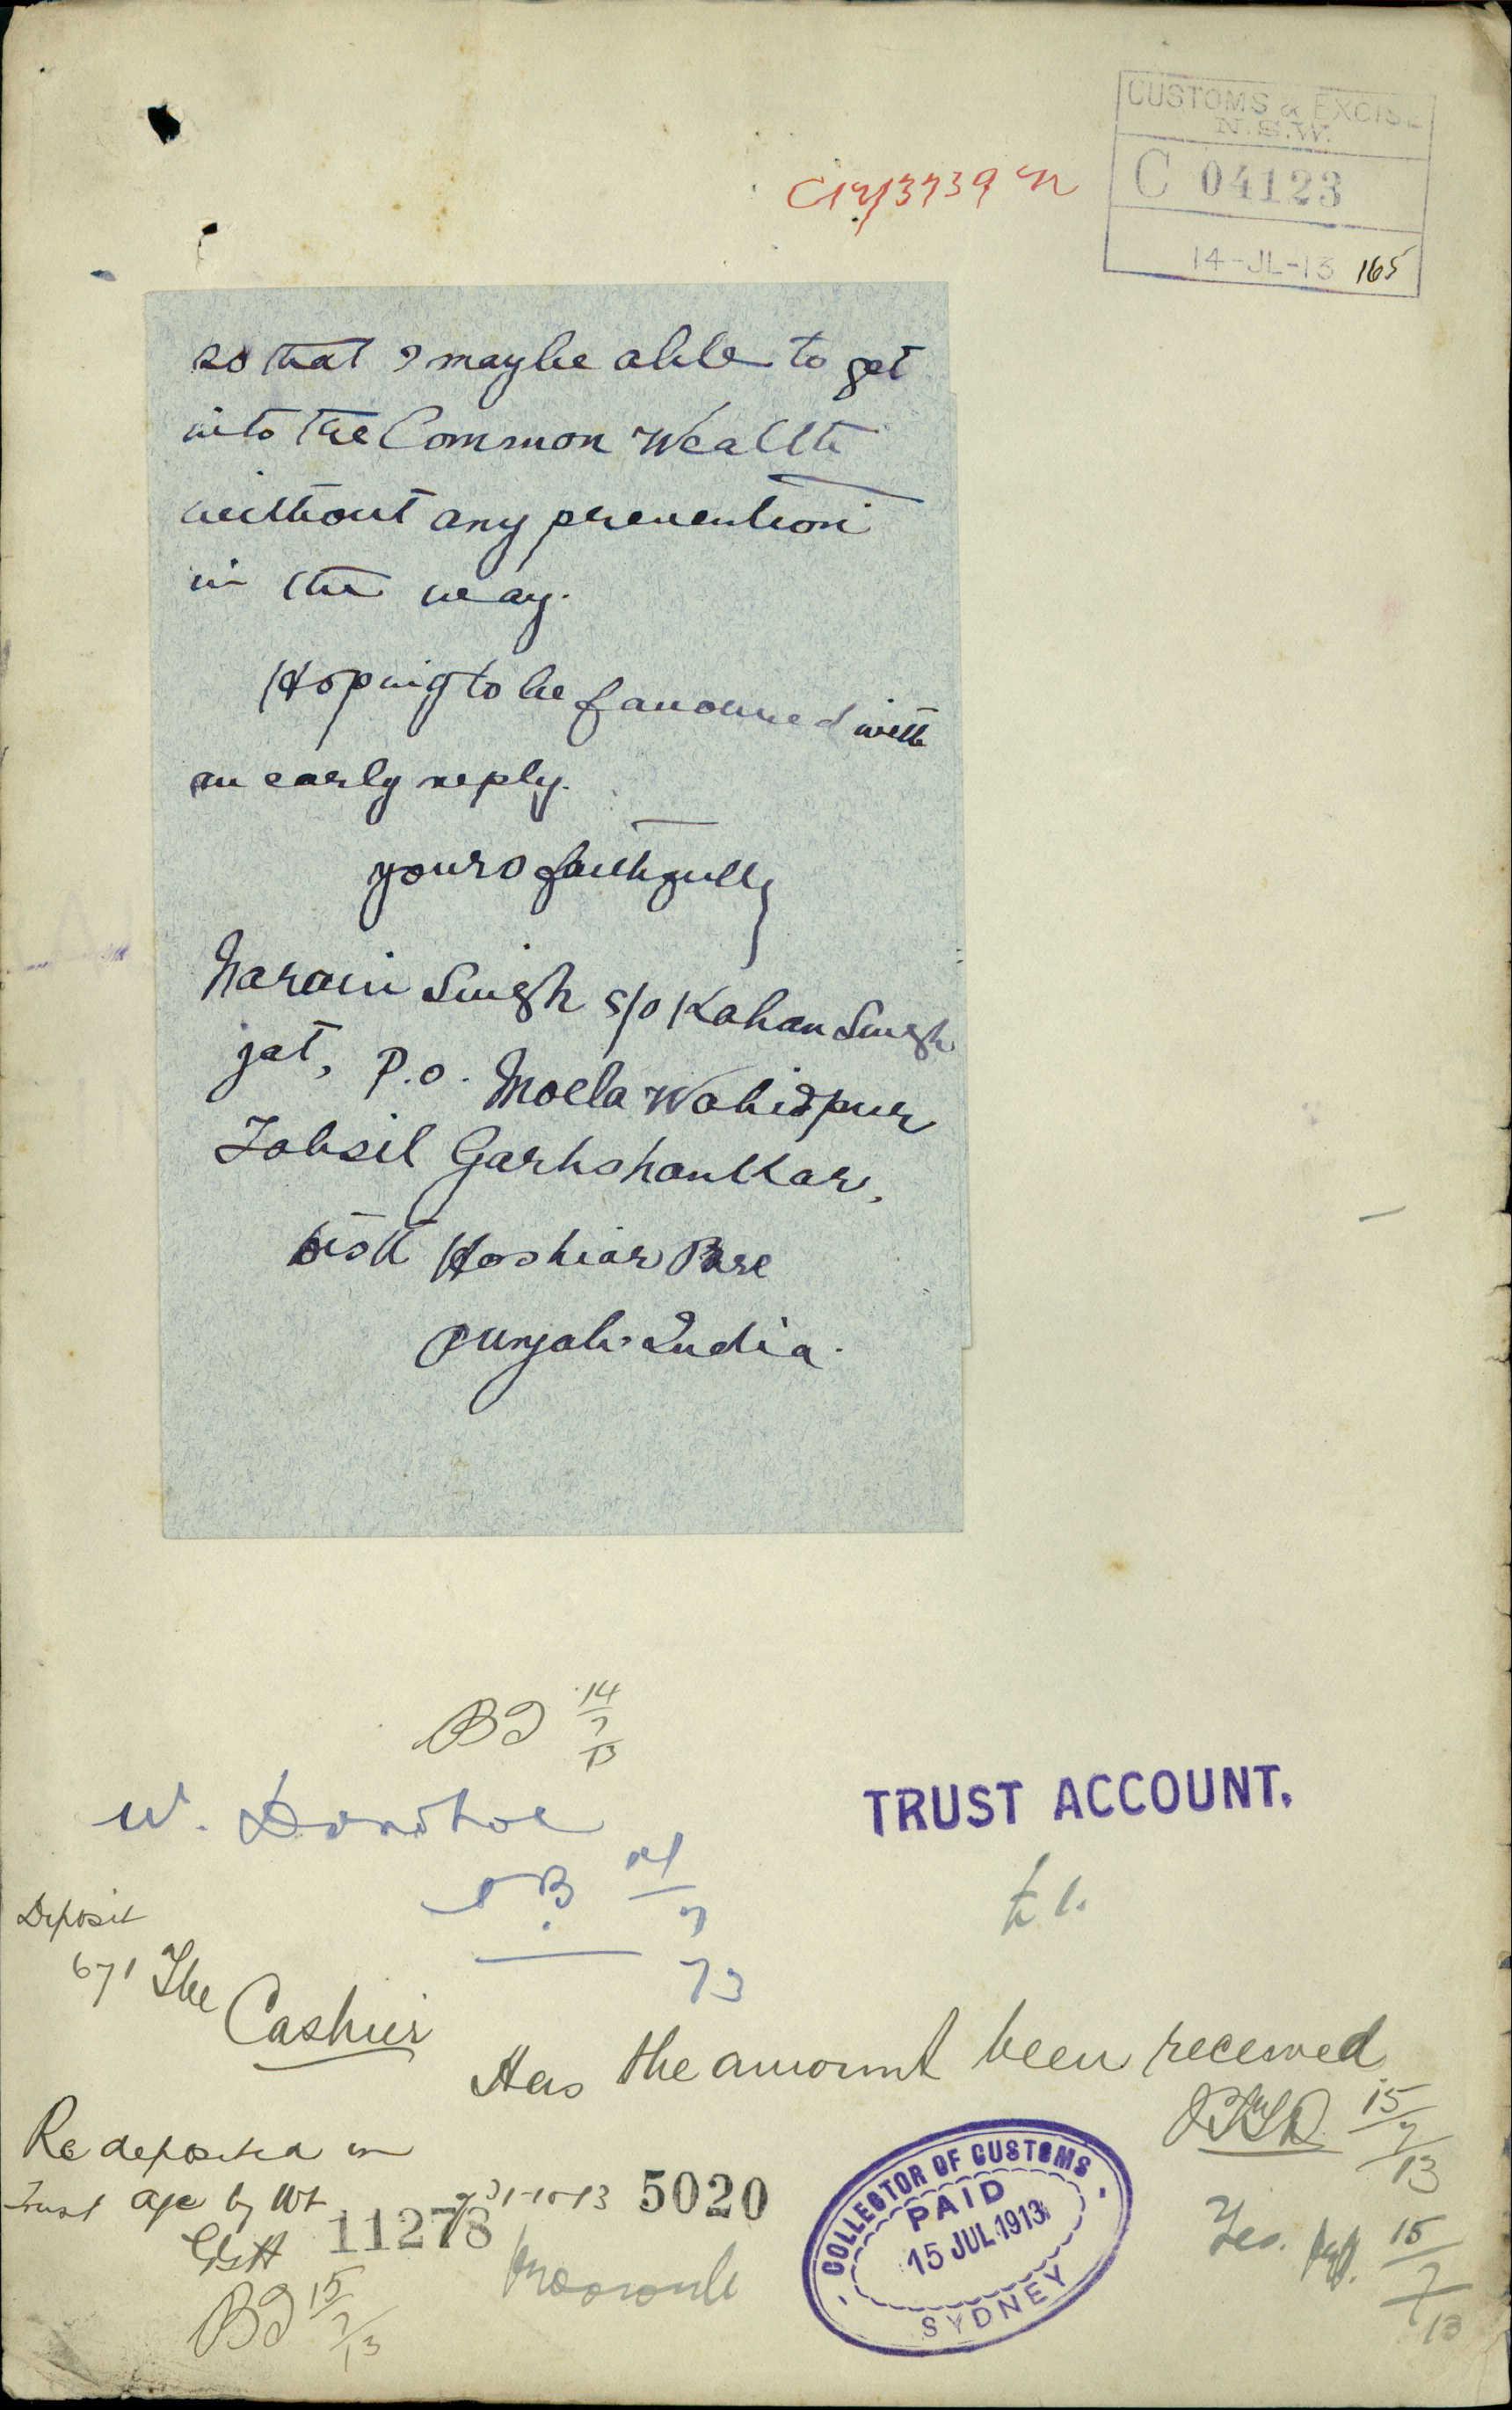 CUSTOMS & EXCISE
N.S.W.
C 04123
14-JL-13 165
C13/3739
so that I maybe able to get
into the Common Wealth
without any prevention
in the way.
Hoping to be favoured with
an early reply.
yours faithfully
Narain Singh s/o Kahan Singh
jat, P.O. Moela Wahidpur
Tahsil Garhshankar,
Distt Hoshiar Pure
Punjab India.
14/7/13
W. Donohoe
14/7/13
TRUST ACCOUNT.
£1.
Deposit
671 The Cashier
Has the amount been received
15/7/13
Re deposited in
Trust a/c by
11278
31-10-13 5020
COLLECTOR OF CUSTOMS
PAID
15 JUL 1913
SYDNEY
Yes. 15/7/13
15/7/13